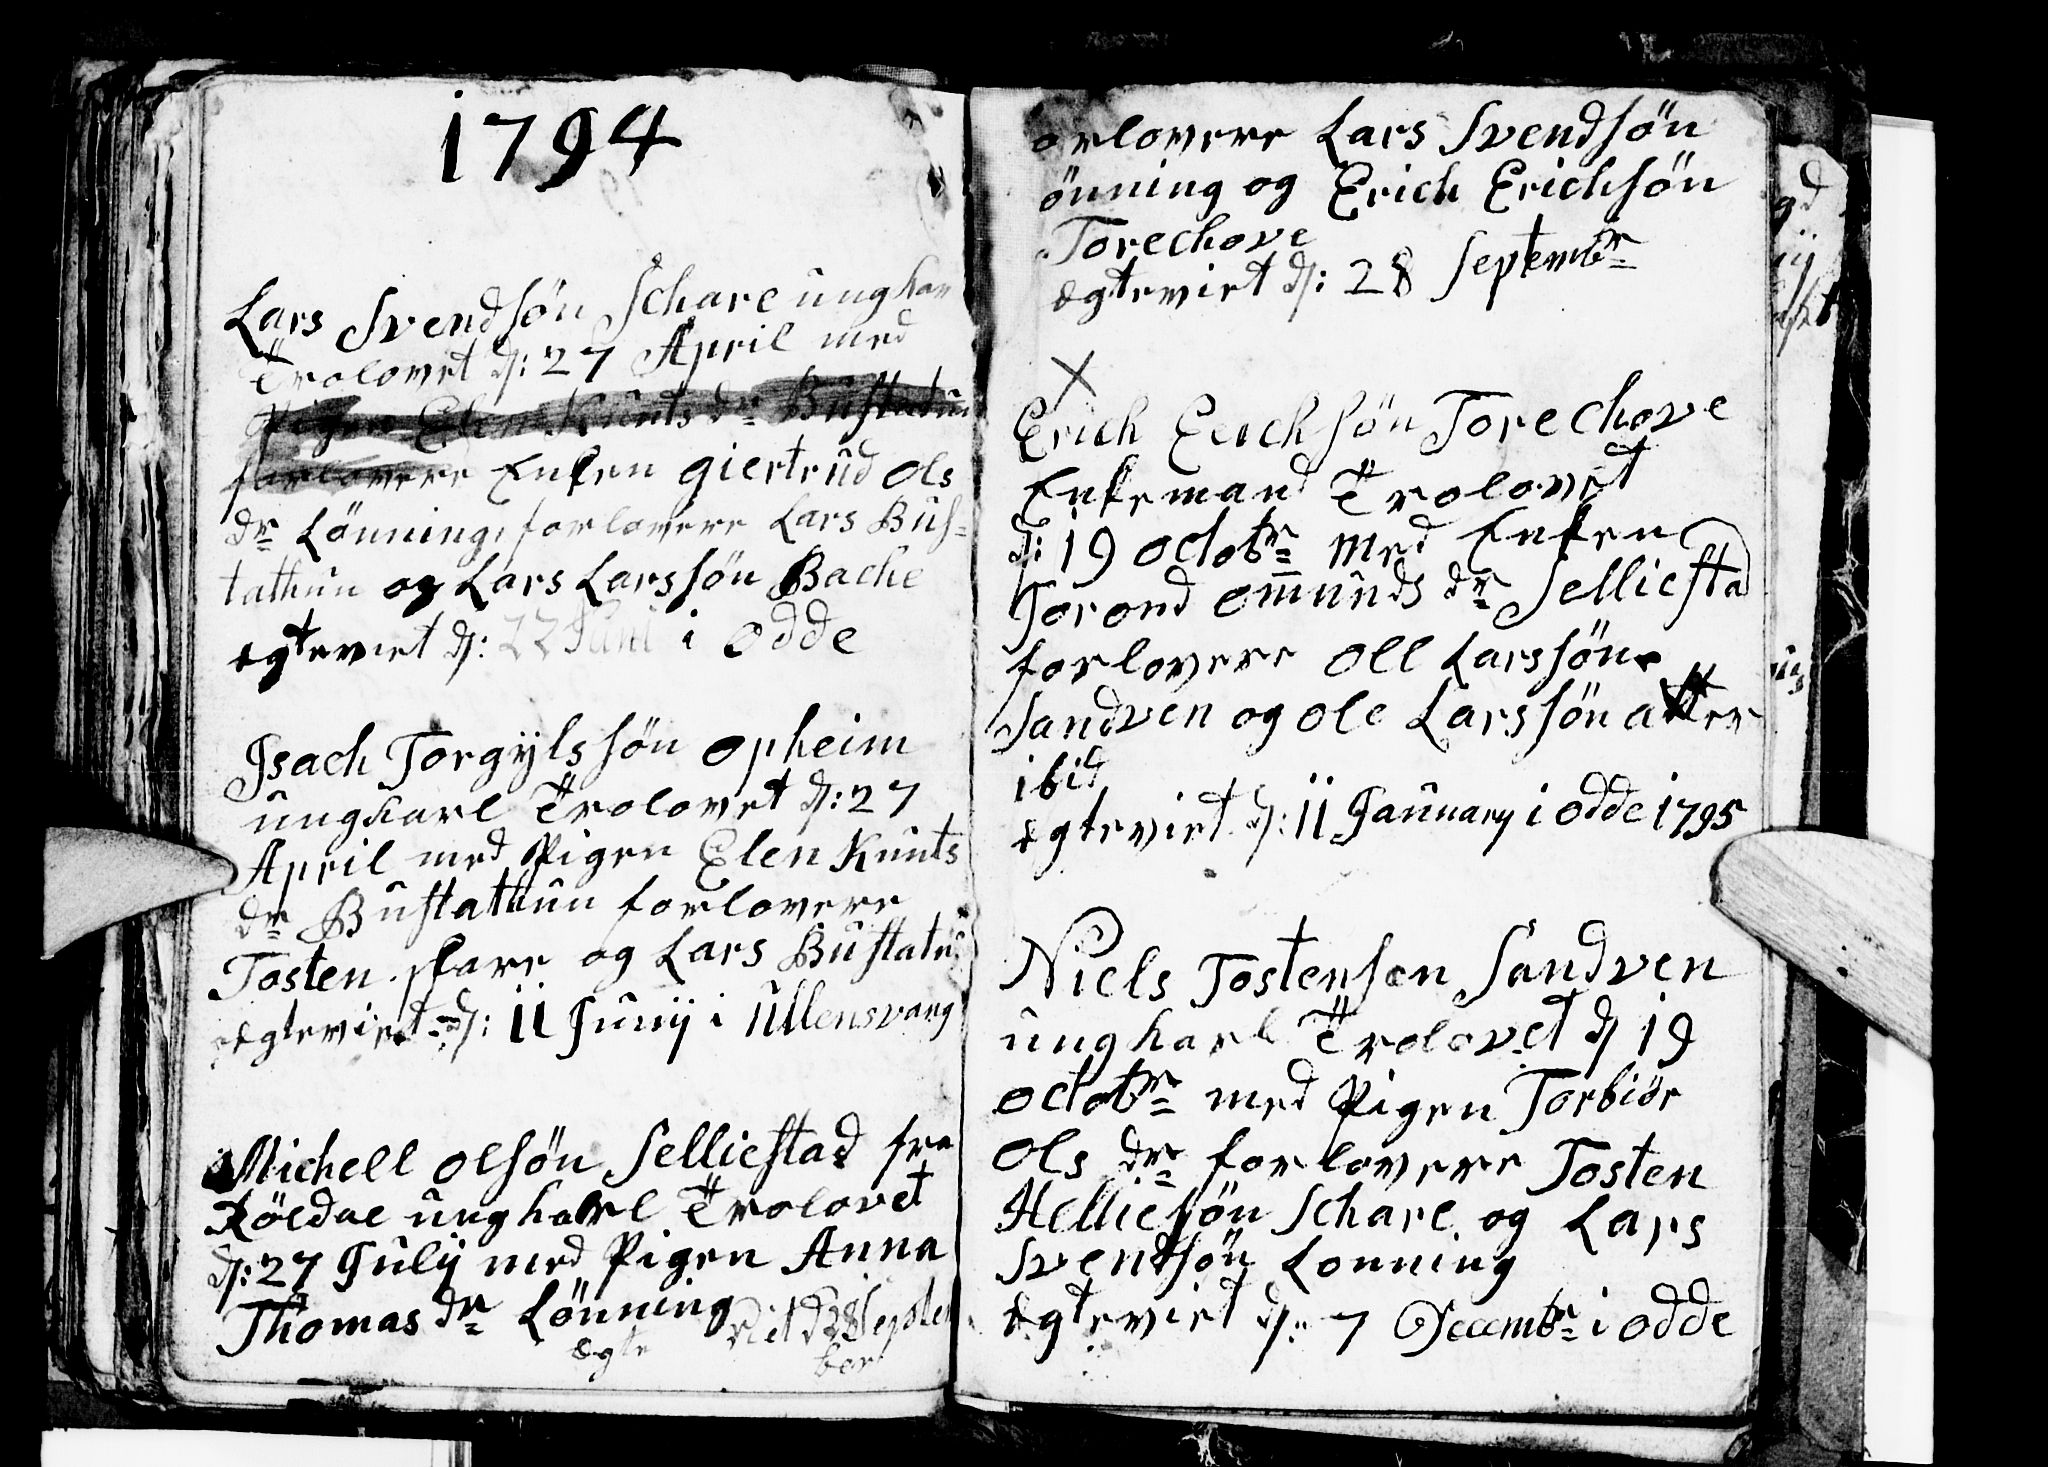 1794
Lars Svendsön Schare ungkar
Trolovet d: 27 April med
Pigen Elen Knuts dr Bustatun
forlovere Enken giertrud Ols
dr Lönning, forlovere Lars Bus=
tathun og Lars Larssön Bache
egteviet d: 22 Juni i Odde
Isach Torgÿlssön Opheim
ungkarl Trolovet d: 27
April med Pigen Elen Knuts
dr Bustathun forlovere
Tosten skare og Lars Bustatu
egteviet d: 11 Junÿ i Ullensvang
Michell Olsön Selliestad fra
Röldal ungkarl Trolovet
d: 27 Julÿ med Pigen Anna
Thomas dr Lönning
egte viet d 28 Septem
ber
orlovere Lars Svendsön
önning og Erich Erichsön
Torechove
egteviet d: 28 Septembr
X
Erich Erichsön Torechove
Enkemand Trolovet
d: 19 Octobr med Enken
Torond Omunds dr Selliesta
forlovere Oll Larssön
Sandven og Ole Larssön atter
ibid
egteviet d: 11 January i Odde 1795
Niels Tostenson Sandven
ungkarl Trolovet d 19
Octobr med Pigen Torbiör
Ols dr forlovere Tosten
Helliesön Schare og Lars
Svendsön Lonning
egteviet d: 7 Decembr i Odde